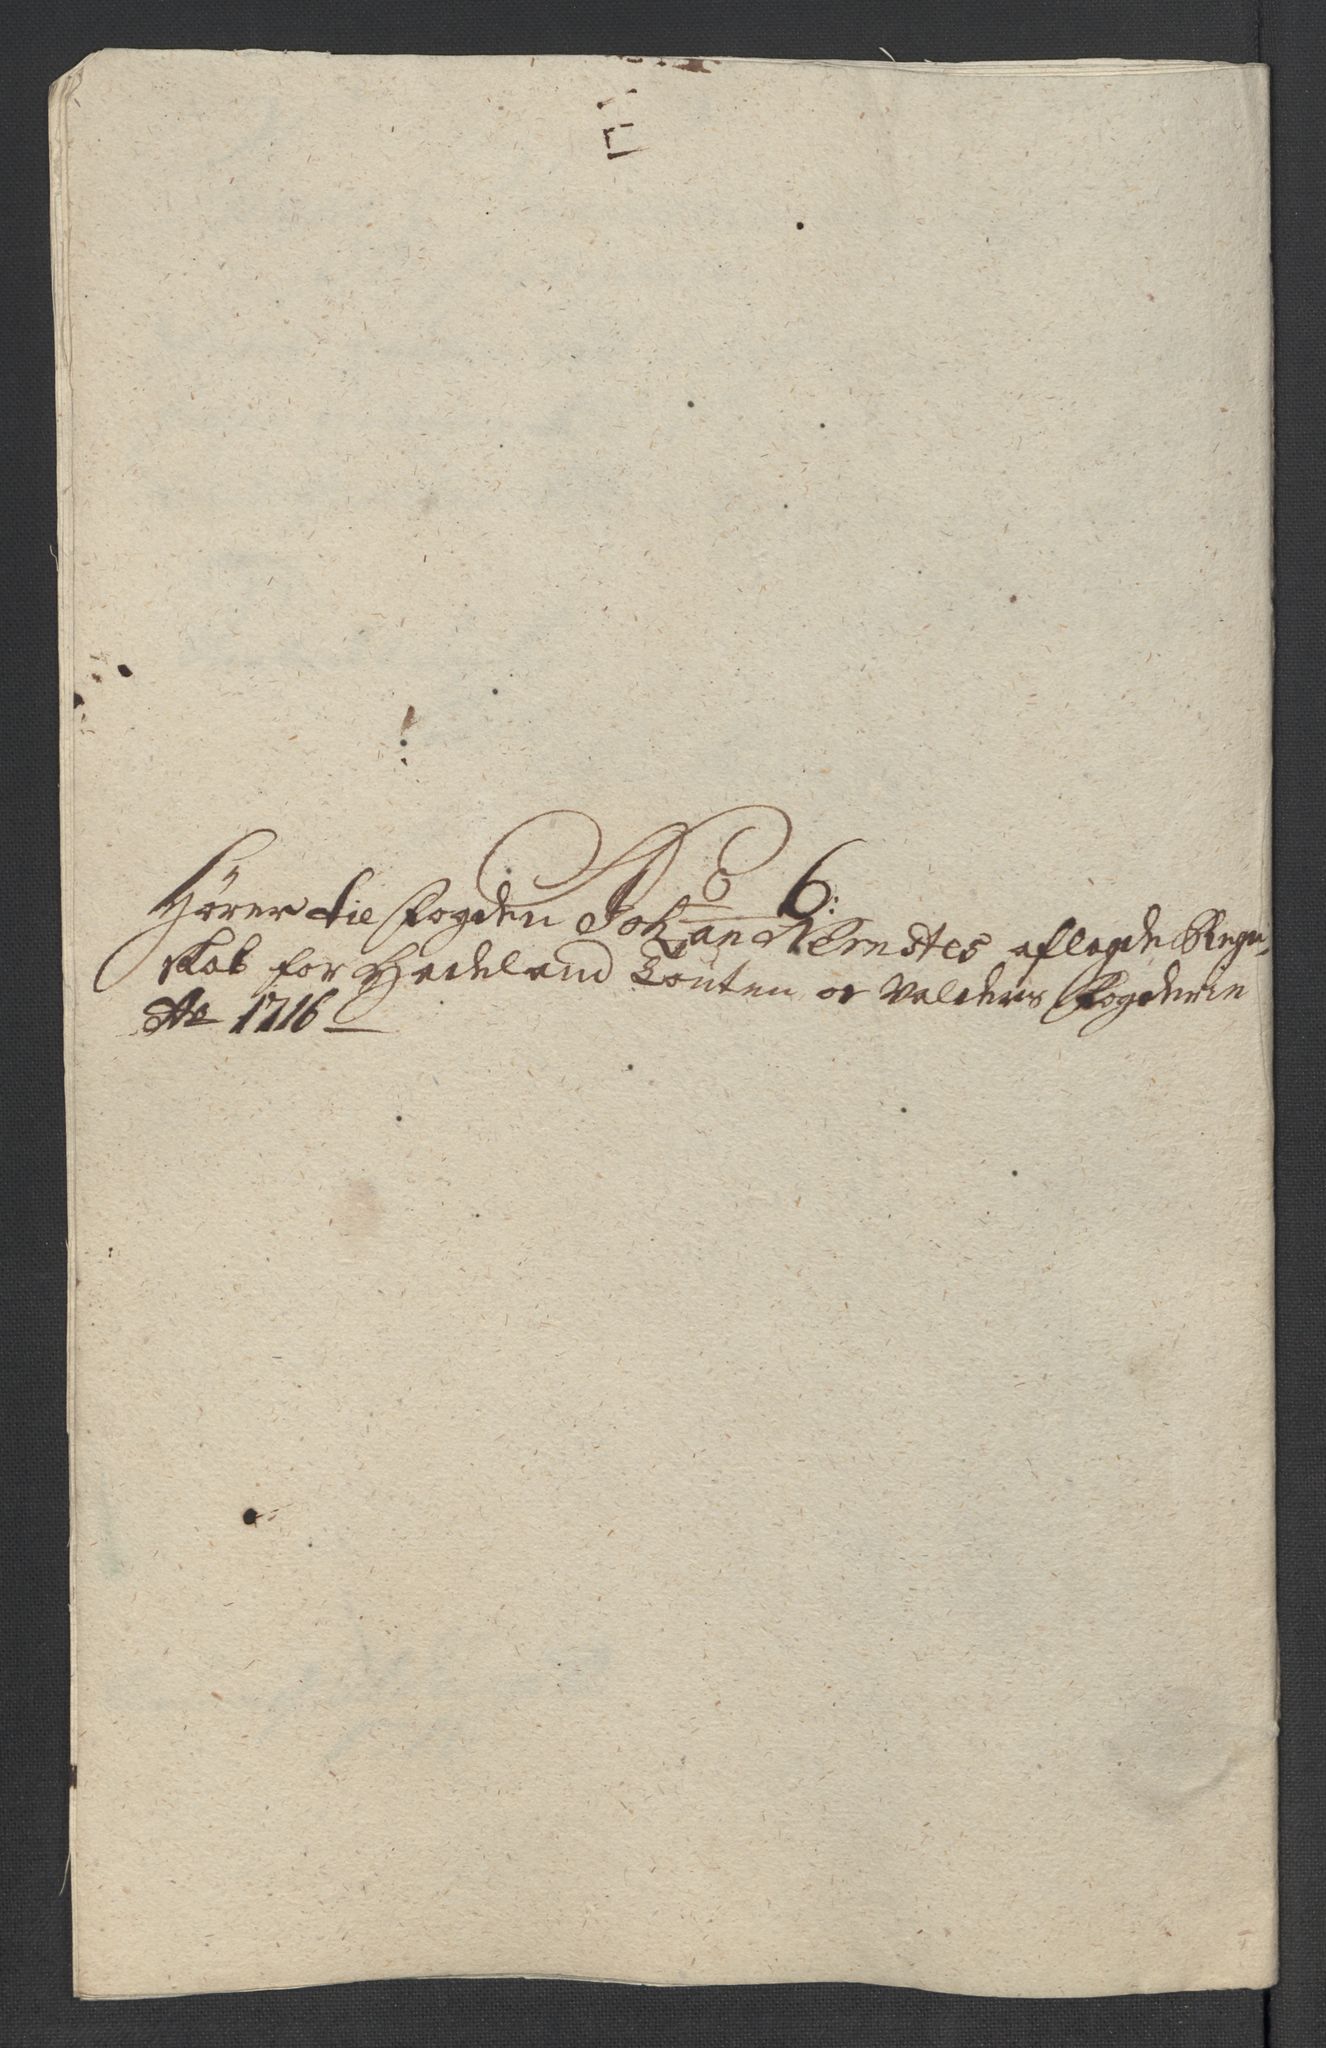 No 6:
Hörer til fogden Johan Arndtes aflagde Regn-
skab for Hadeland Toten oc Valders fogderie
Ao 1716